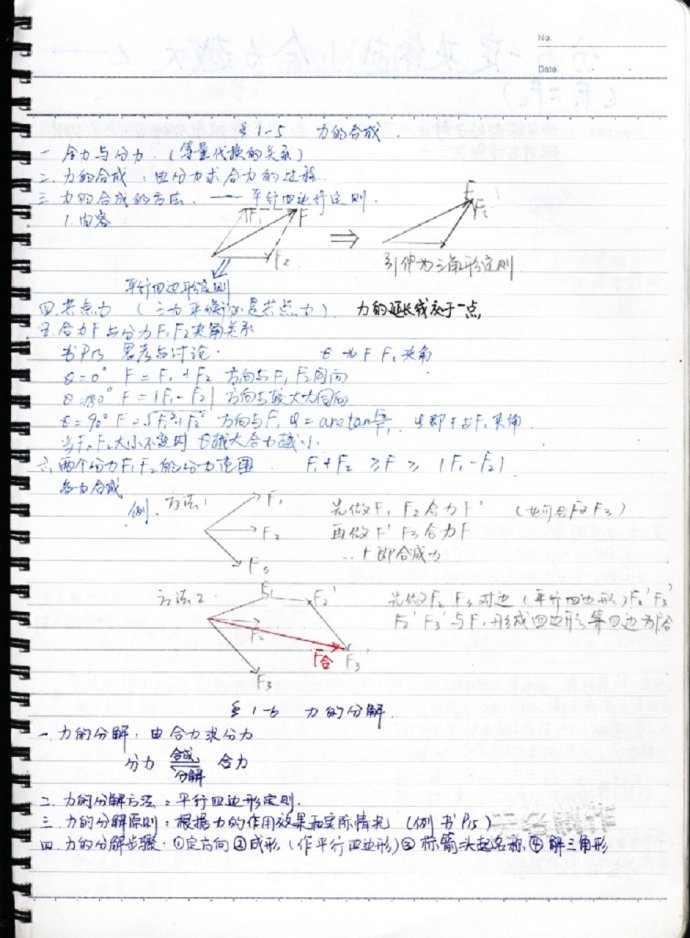 No.
Date
§1-5 力的合成.
一 合力与分力. (等量代换的关系)
二. 力的合成: 由分力求合力的过程.
三 力的合成的方法. —— 平行四边行定则.
1. 内容
F₁ F F₂ ⇒ F F₂
平行四边形定则 引伸为三角形定则
四. 共点力 (三力平衡必是共点力). 力的延长线交于一点
五. 合力F与分力F₁F₂夹角关系
书P13 思考与讨论. θ为F₁F₂夹角
θ=0° F=F₁+F₂ 方向与F₁F₂同向
θ=180° F=|F₁-F₂| 方向与较大力同向
θ=90° F=√F₁²+F₂² 方向与F₁ φ=arctan F₂/F₁ φ即F与F₁夹角
当F₁F₂大小不变时 θ越大合力越小.
六. 两个分力F₁F₂的合力范围 F₁+F₂ ≥F≥ |F₁-F₂|
多力合成
例. 方法1 F₁ F₂ F₃
先做F₁ F₂合力F' (也可合F₂F₃)
再做F' F₃合力F
∴ F即合成力
方法2 F₁ F₂' F₂ F合 F₃' F₃
先做F₂ F₃对边 (平行四边形) F₂' F₃'
F₂' F₃'与F₁形成四边形, 第四边为F合
§1-6 力的分解.
一. 力的分解: 由合力求分力
分力 合成 分解 合力
二. 力的分解方法: 平行四边形定则.
三. 力的分解原则: 根据力的作用效果和实际情况 (例 书P15)
四. 力的分解步骤. ①定方向 ②成形 (作平行四边形) ③标箭头起名称 ④解三角形